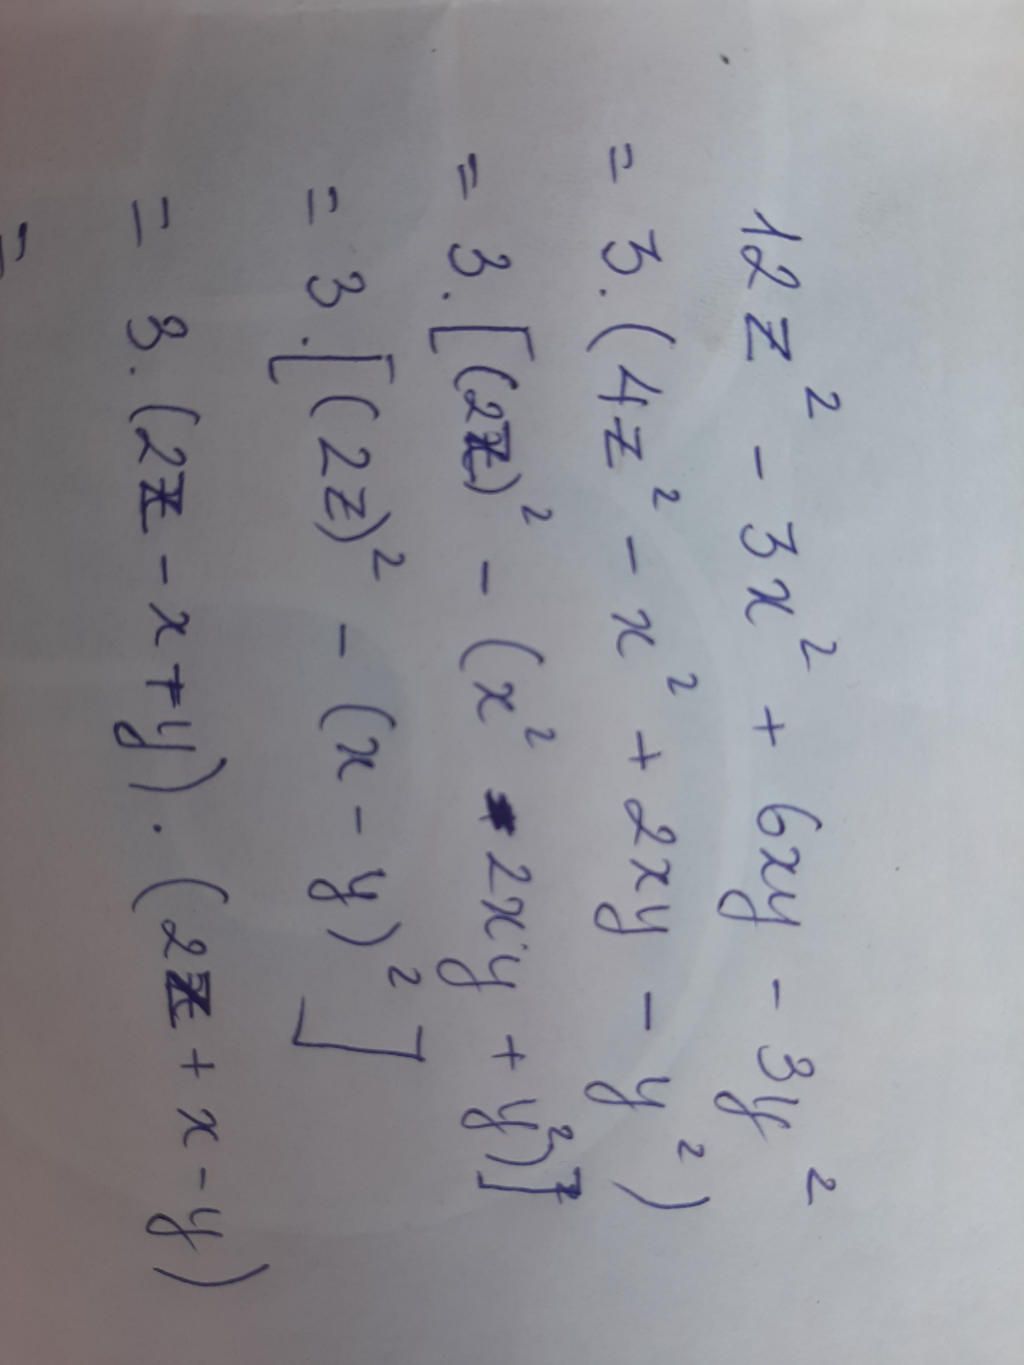 12z² - 3x² + 6xy - 3y²
= 3.(4z² - x² + 2xy - y²)
= 3.[(2z)² - (x² - 2xy + y²)]
= 3.[(2z)² - (x - y)²]
= 3.(2z - x + y).(2z + x - y)
=